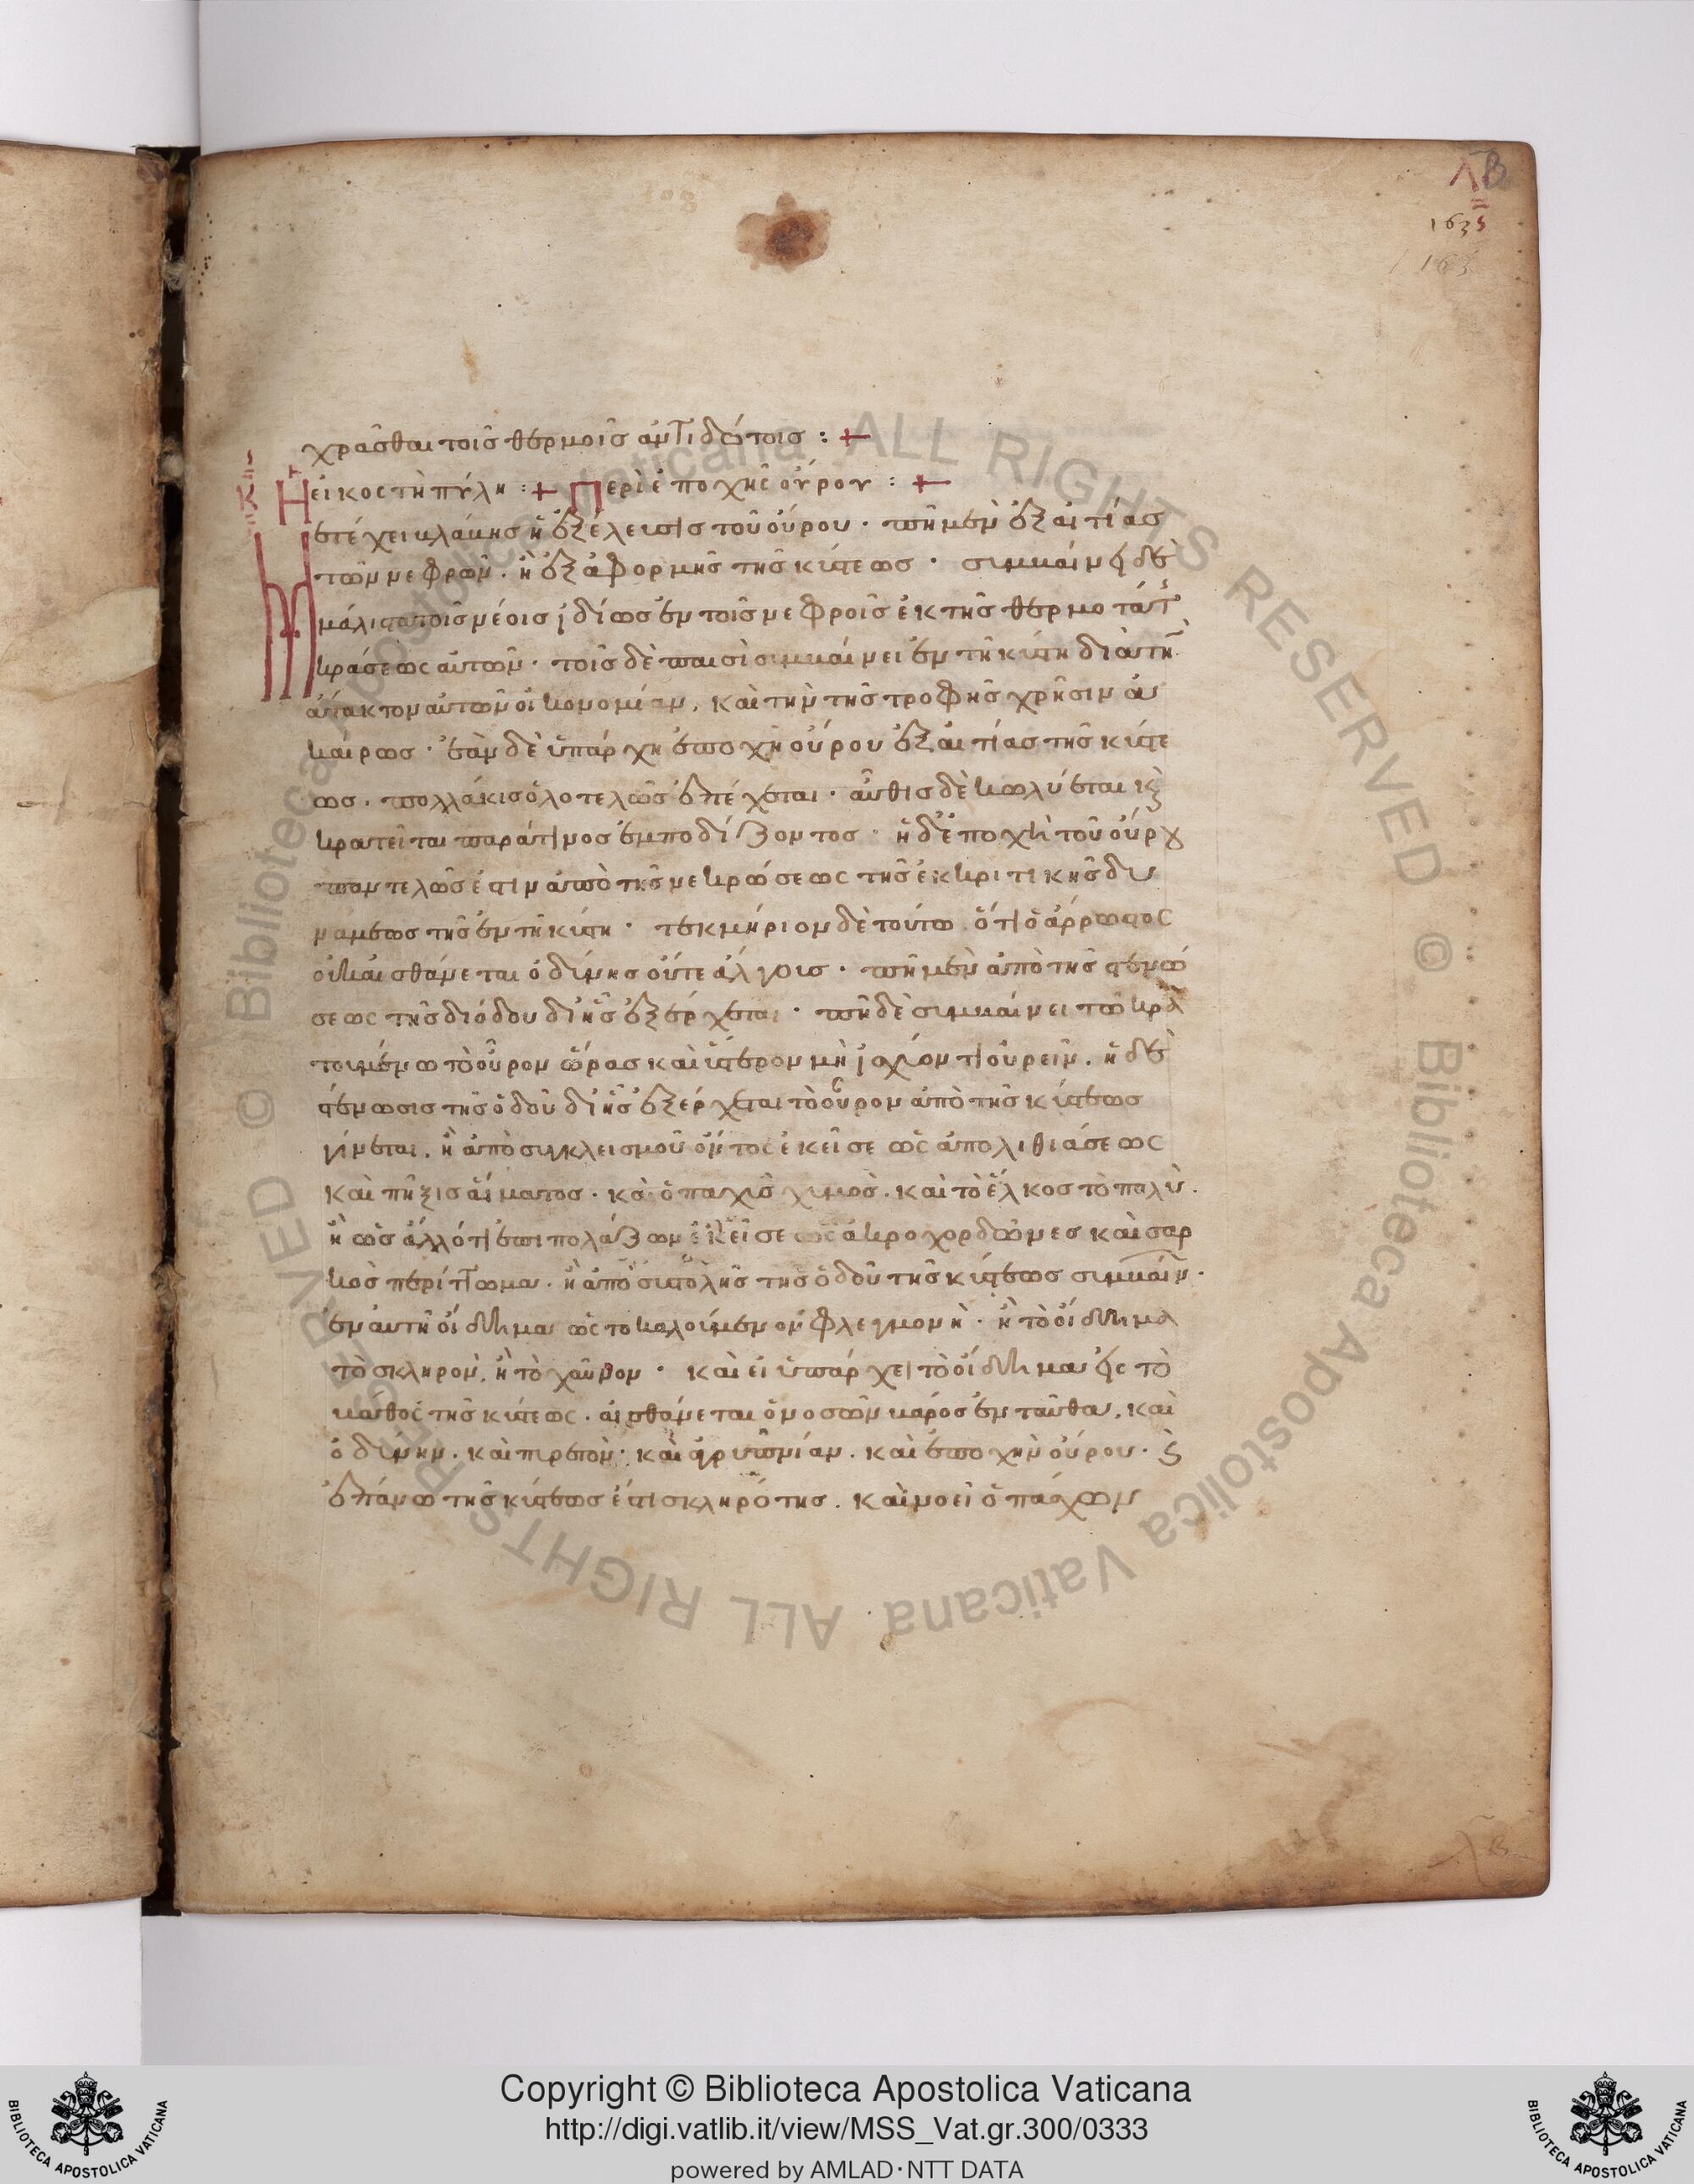 ΛΒ
163
163
χρᾶσθαι τοῖς θερμοῖς ἀντιδότοις :+
Κ Η εἰκοστὴ πύλη :+ Περὶ ἐποχῆς οὔρου :+
στέχει βλάβης ἡ ἐξέλευσις τοῦ οὔρου · πῆ μὲν ἐξ αἰτίας
τῶν νεφρῶν . ἢ ἐξ ἀφορμῆς τῆς κύστεως · συμβαίν δὲ
μάλιστα τοῖς νέοις ἰδίως ἐν τοῖς νεφροῖς ἐκ τῆς θερμοτάτ
κράσεως αὐτῶν · τοῖς δὲ παισὶ συμβαίνει ἐν τῆ κύστη διὰ τὴ
ἄτακτον αὐτῶν οἰκονομίαν, καὶ τὴν τῆς τροφῆς χρῆσιν ἀ
καίρως · ἐὰν δὲ ὑπάρχη ἐποχὴ οὔρου ἐξ αἰτίας τῆς κύστε
ως . πολλάκις ὁλοτελῶς ἐπέχεται · αὖθις δὲ κωλύεται κ
κρατεῖται παρά τινος ἐμποδίζοντος · ἡ δ' ἐποχὴ τοῦ οὔρου
παντελῶς ἐστιν ἀπὸ τῆς νεκρώσεως τῆς ἐκκριτικῆς δυ
νάμεως τῆς ἐν τῆ κύστη · τεκμήριον δὲ τούτω ὅτι ὁ ἄρρωστος
οὐκ αἰσθάνεται ὀδύνης οὔτε ἄλγοις · πῆ μὲν ἀπὸ τῆς στενώ
σεως τῆς διόδου δι' ἧς ἐξέρχεται · πῆ δὲ συμβαίνει τῶ κρα
τουμένω τὸ οὖρον ὥρας καὶ ὕστερον μὴ ἰσχύοντι οὐρεῖν . ἡ δὲ
στένωσις τῆς ὁδοῦ δι' ἧς ἐξέρχεται τὸ οὖρον ἀπὸ τῆς κύστεως
γίνεται . ἢ ἀπὸ συγκλεισμοῦ ὄντος ἐκεῖσε ὡς ἀπολιθιάσεως
καὶ πῆξις αἵματος . κα ὁ παχὺς χυμὸς . καὶ τὸ ἕλκος τὸ πολὺ .
ἢ ὡς ἄλλό τι ἐπιπολάζων ἐκεῖσε ὡς ἀκροχορδῶνες καὶ σαρ
κὸς περίττωμα . ἢ ἀπὸ συστολῆς τῆς ὁδοῦ τῆς κύστεως συμβαίν .
ἐν αὐτῆ οἴδημα ὡς τὸ καλούμενον φλεγμονὴ · ἢ τὸ οἴδημα
τὸ σκληρὸν, ἢ τὸ χαῦνον · καὶ εἰ ὑπάρχει τὸ οἴδημα εἰς τὸ
βάθος τῆς κύστεως . αἰσθάνεται ὁ νοσῶν βάρος ἐνταῦθα, καὶ
ὀδύνην . καὶ πυρετὸν · καὶ ἀγρυπνίαν . καὶ ἐποχὴν οὔρου · κ
ἐπάνω τῆς κύστεως ἐστι σκληρότης . καὶ νοεῖ ὁ πάσχων
© Biblioteca Apostolica Vaticana ALL RIGHTS RESERVED © Biblioteca Apostolica Vaticana ALL RIGHTS RESERVED
Copyright © Biblioteca Apostolica Vaticana
http://digi.vatlib.it/view/MSS_Vat.gr.300/0333
powered by AMLAD·NTT DATA
BIBLIOTECA APOSTOLICA VATICANA
BIBLIOTECA APOSTOLICA VATICANA